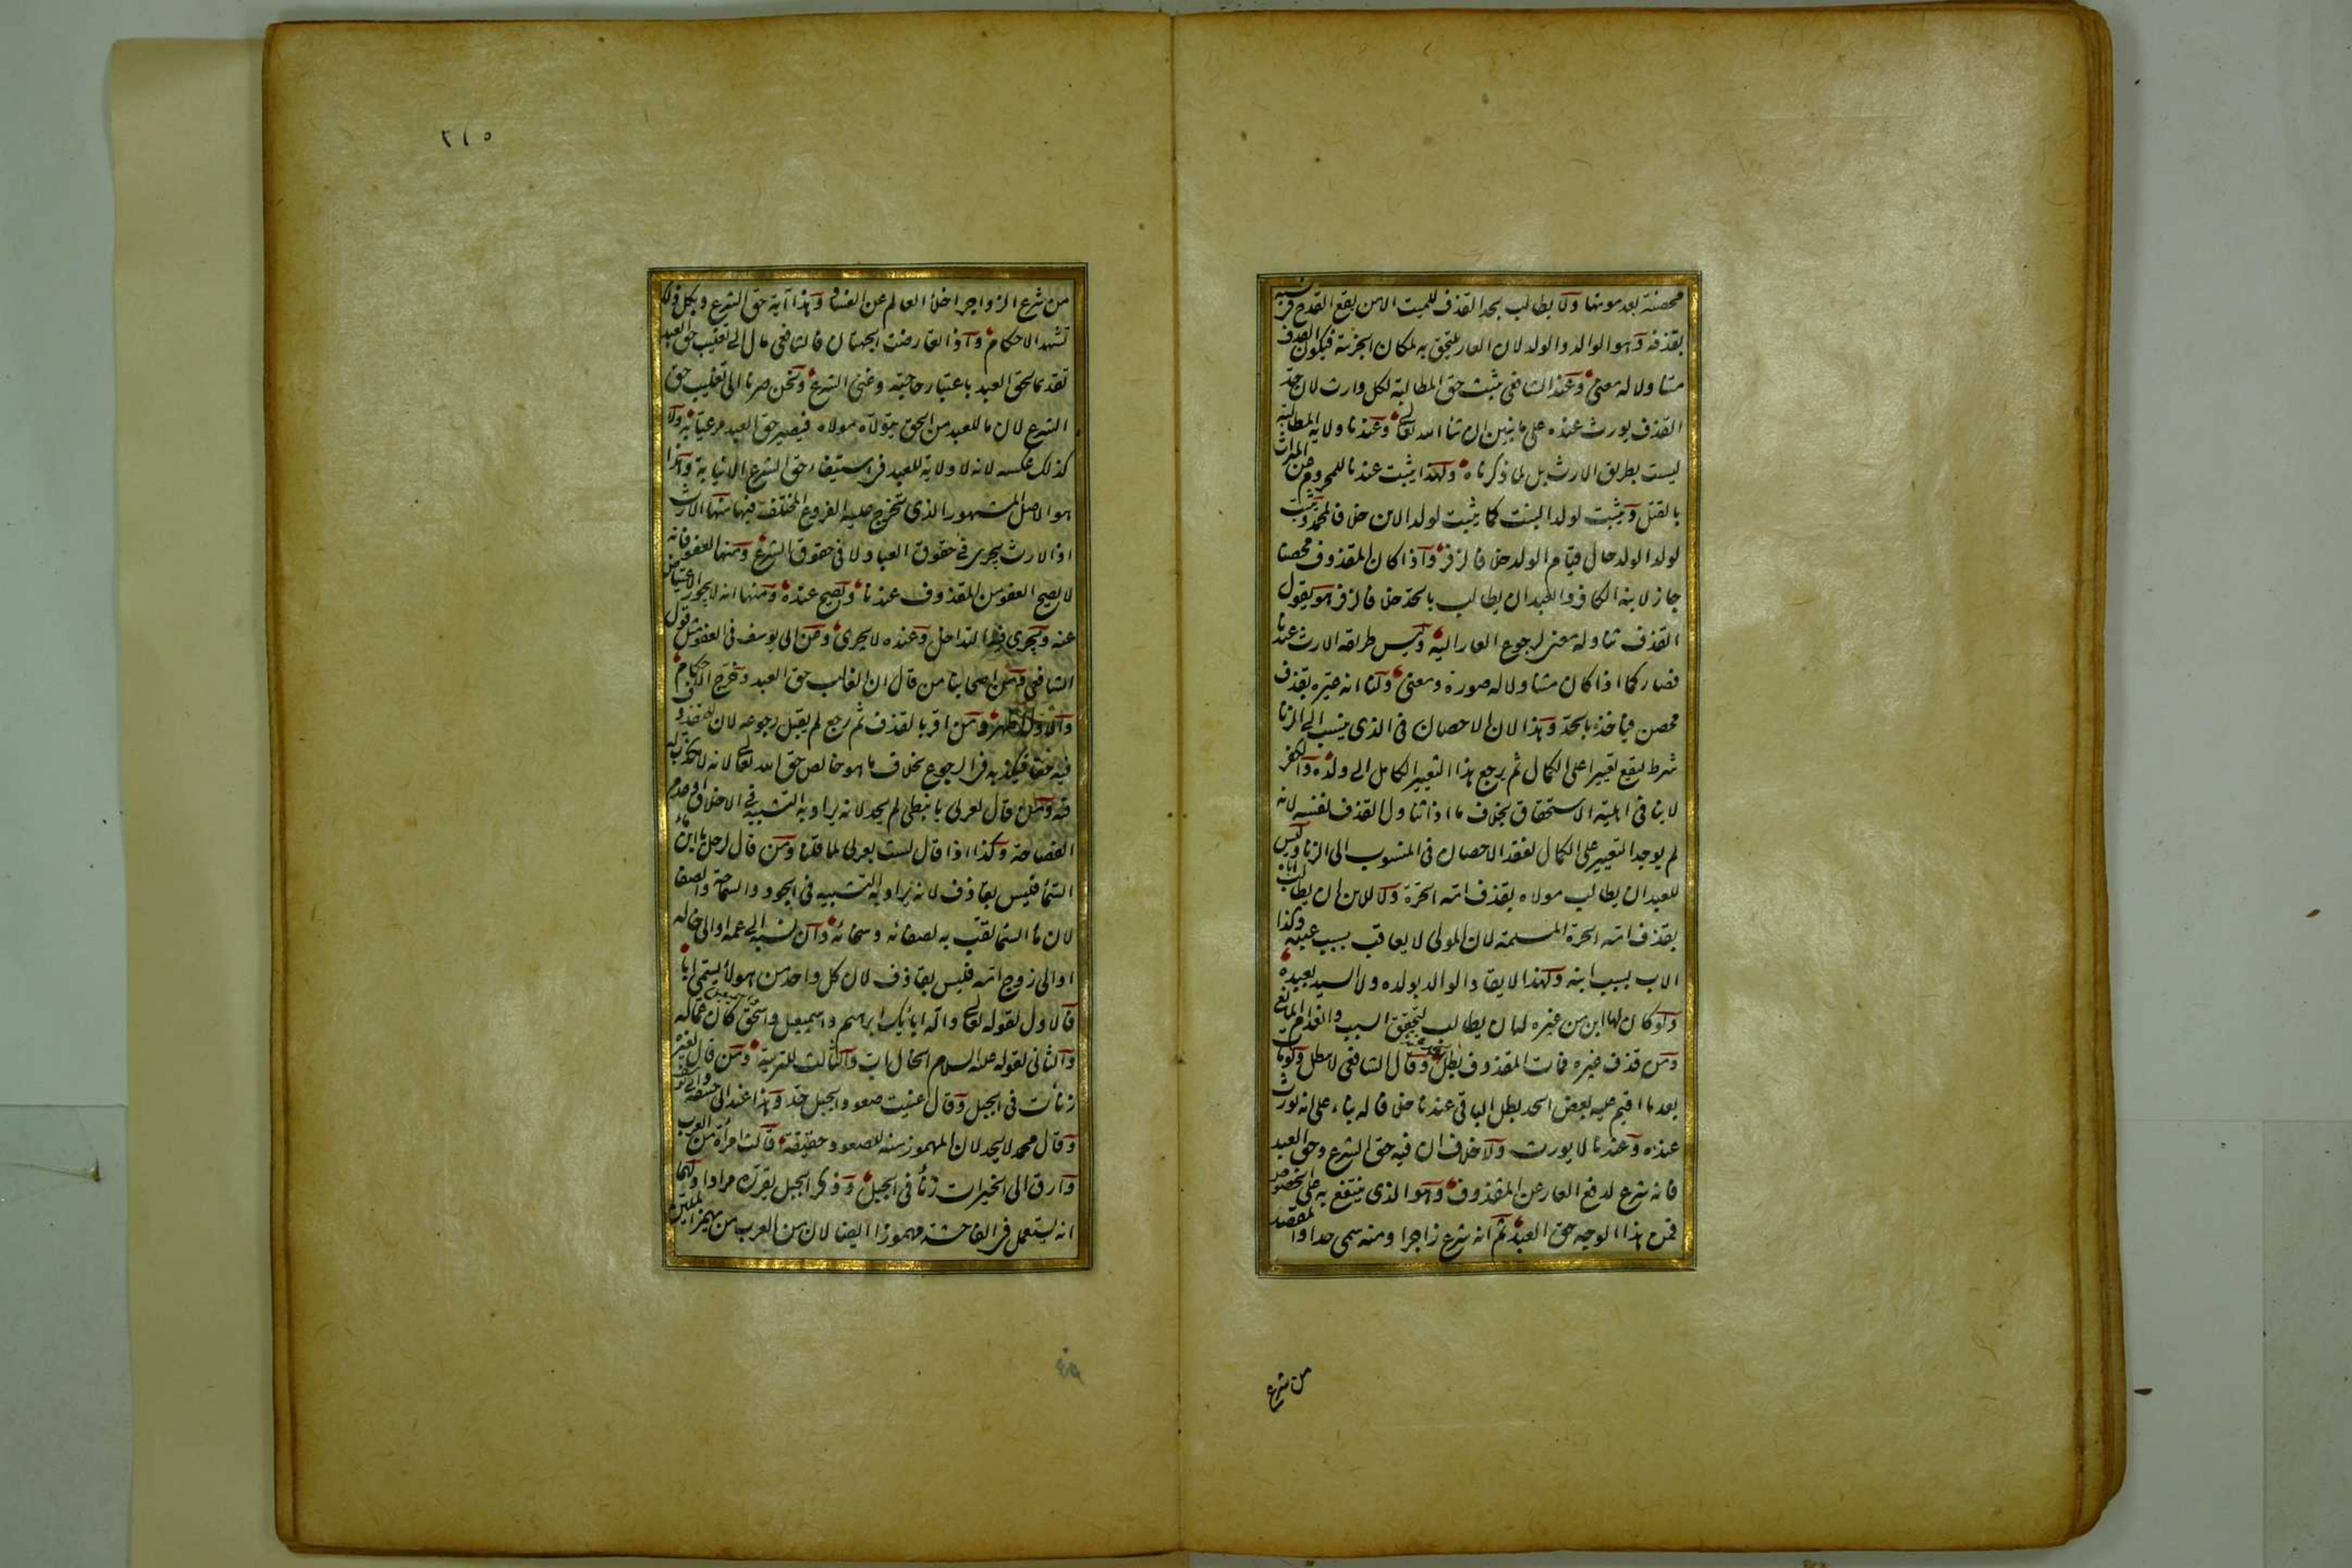 محصنة بعد موتها ولا يطالب بحد القذف للميت الا من يقع القدح في نسبه
بقذفه وهو الوالد والولد لان العار يلتحق به لمكان الجزئية فيكون القذف
متناولا له معنى وعند الشافعي يثبت حق المطالبة لكل وارث لان حد
القذف يورث عنده على ما نبين ان شاء الله تعالى وعندنا ولاية المطالبة
ليست بطريق الارث بل لما ذكرناه ولهذا يثبت عندنا للمحروم من الميراث
بالقتل ويثبت لولد البنت كما يثبت لولد الابن خلافا لمحمد ويثبت
لولد الولد حال قيام الولد خلافا لزفر واذا كان المقذوف محصنا
جاز لابنه الكافر والعبد ان يطالب بالحد خلافا لزفر هو يقول
القذف تناوله معنى لرجوع العار اليه وليس طريقه الارث عندنا
فصار كما اذا كان متناولا له صورة ومعنى ولنا انه عيره بقذف
محصن فياخذه بالحد وهذا لان الاحصان في الذي ينسب الى الزنا
شرط ليقع تعييرا على الكمال ثم يرجع هذا التعيير الكامل الى ولده والكفر
لا ينافي اهلية الاستحقاق بخلاف ما اذا تناول القذف نفسه لانه
لم يوجد التعيير على الكمال لفقد الاحصان في المنسوب الى الزنا وليس
للعبد ان يطالب مولاه بقذف امه الحرة ولا للابن ان يطالب اباه
بقذف امه الحرة المسلمة لان المولى لا يعاقب بسبب عبده وكذا
الاب بسبب ابنه ولهذا لا يقاد الوالد بولده ولا السيد بعبده
ولو كان لها ابن من غيره له ان يطالب لتحقق السبب وانعدام المانع
ومن قذف غيره فمات المقذوف بطل الحد وقال الشافعي لا يبطل ولو مات
بعد ما اقيم عليه بعض الحد بطل الباقي عندنا خلافا له بناء على انه يورث
عنده وعندنا لا يورث ولا خلاف ان فيه حق الشرع وحق العبد
فانه شرع لدفع العار عن المقذوف وهو الذي ينتفع به على الخصوص
فمن هذا الوجه حق العبد ثم انه شرع زاجرا ومنه سمي حدا والمقصد
من شرع
٢١٥
من شرع الزواجر اخلاء العالم عن الفساد وهذا آية حق الشرع وبكل ذلك
تشهد الاحكام واذا تعارضت الجهتان فالشافعي مال الى تغليب حق العبد
تقديما لحق العبد باعتبار حاجته وغنى الشرع ونحن صرنا الى تغليب حق
الشرع لان ما للعبد من الحق يتولاه مولاه فيصير حق العبد مرعيا به ولا
كذلك عكسه لانه لا ولاية للعبد في استيفاء حق الشرع الا نيابة وهذا
هو الاصل المشهور الذي يتخرج عليه الفروع المختلف فيها منها الارث
اذ الارث يجري في حقوق العباد لا في حقوق الشرع ومنها العفو فانه
لا يصح العفو من المقذوف عندنا ويصح عنده ومنها انه لا يجوز الاعتياض
عنه ويجري فيه التداخل وعنده لا يجري وعن ابي يوسف في العفو مثل قول
الشافعي ومن اصحابنا من قال ان الغالب حق العبد وخرج الاحكام
والاول اظهر ومن اقر بالقذف ثم رجع لم يقبل رجوعه لان للمقذوف
فيه حقا فيكذبه في الرجوع بخلاف ما هو خالص حق الله تعالى لانه لا مكذب له
فيه ومن قال لعربي يا نبطي لم يحد لانه يراد به التشبيه في الاخلاق او عدم
الفصاحة وكذا اذا قال لست بعربي لما قلنا ومن قال لرجل يا ابن ماء
السماء فليس بقاذف لانه يراد به التشبيه في الجود والسماحة والصفاء
لان ماء السماء لقب به لصفائه وسخائه وان نسبه الى عمه او الى خاله
او الى زوج امه فليس بقاذف لان كل واحد من هولاء يسمى ابا
فالاول لقوله تعالى واله ابائك ابرهيم واسمعيل واسحق كان عما له
والثاني لقوله عليه السلام الخال اب والثالث للتربية ومن قال لغيره
زنأت في الجبل وقال عنيت صعود الجبل حد وهذا عند ابي حنيفة وابي يوسف
وقال محمد لا يحد لان المهموز منه للصعود حقيقة قالت امرأة من العرب
وارق الى الخيرات زنأ في الجبل وذكر الجبل يقرره مرادا ولهما
انه يستعمل في الفاحشة مهموزا ايضا لان من العرب من يهمز الملين